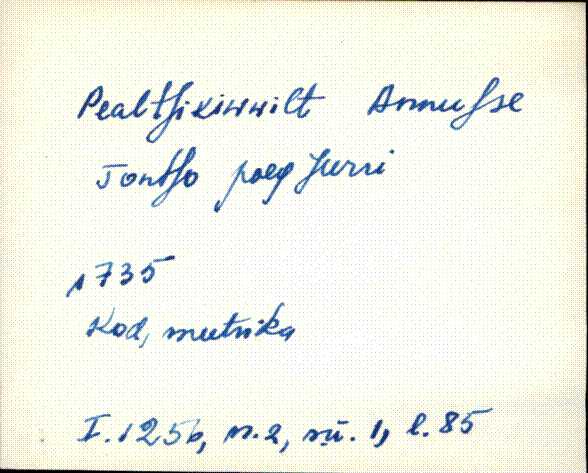 Pealtſikiwwilt Annuſse
Tontſo poeg Jurri
1735
Kod, meetrika
I.125b, n.2, sü. 1, l.85